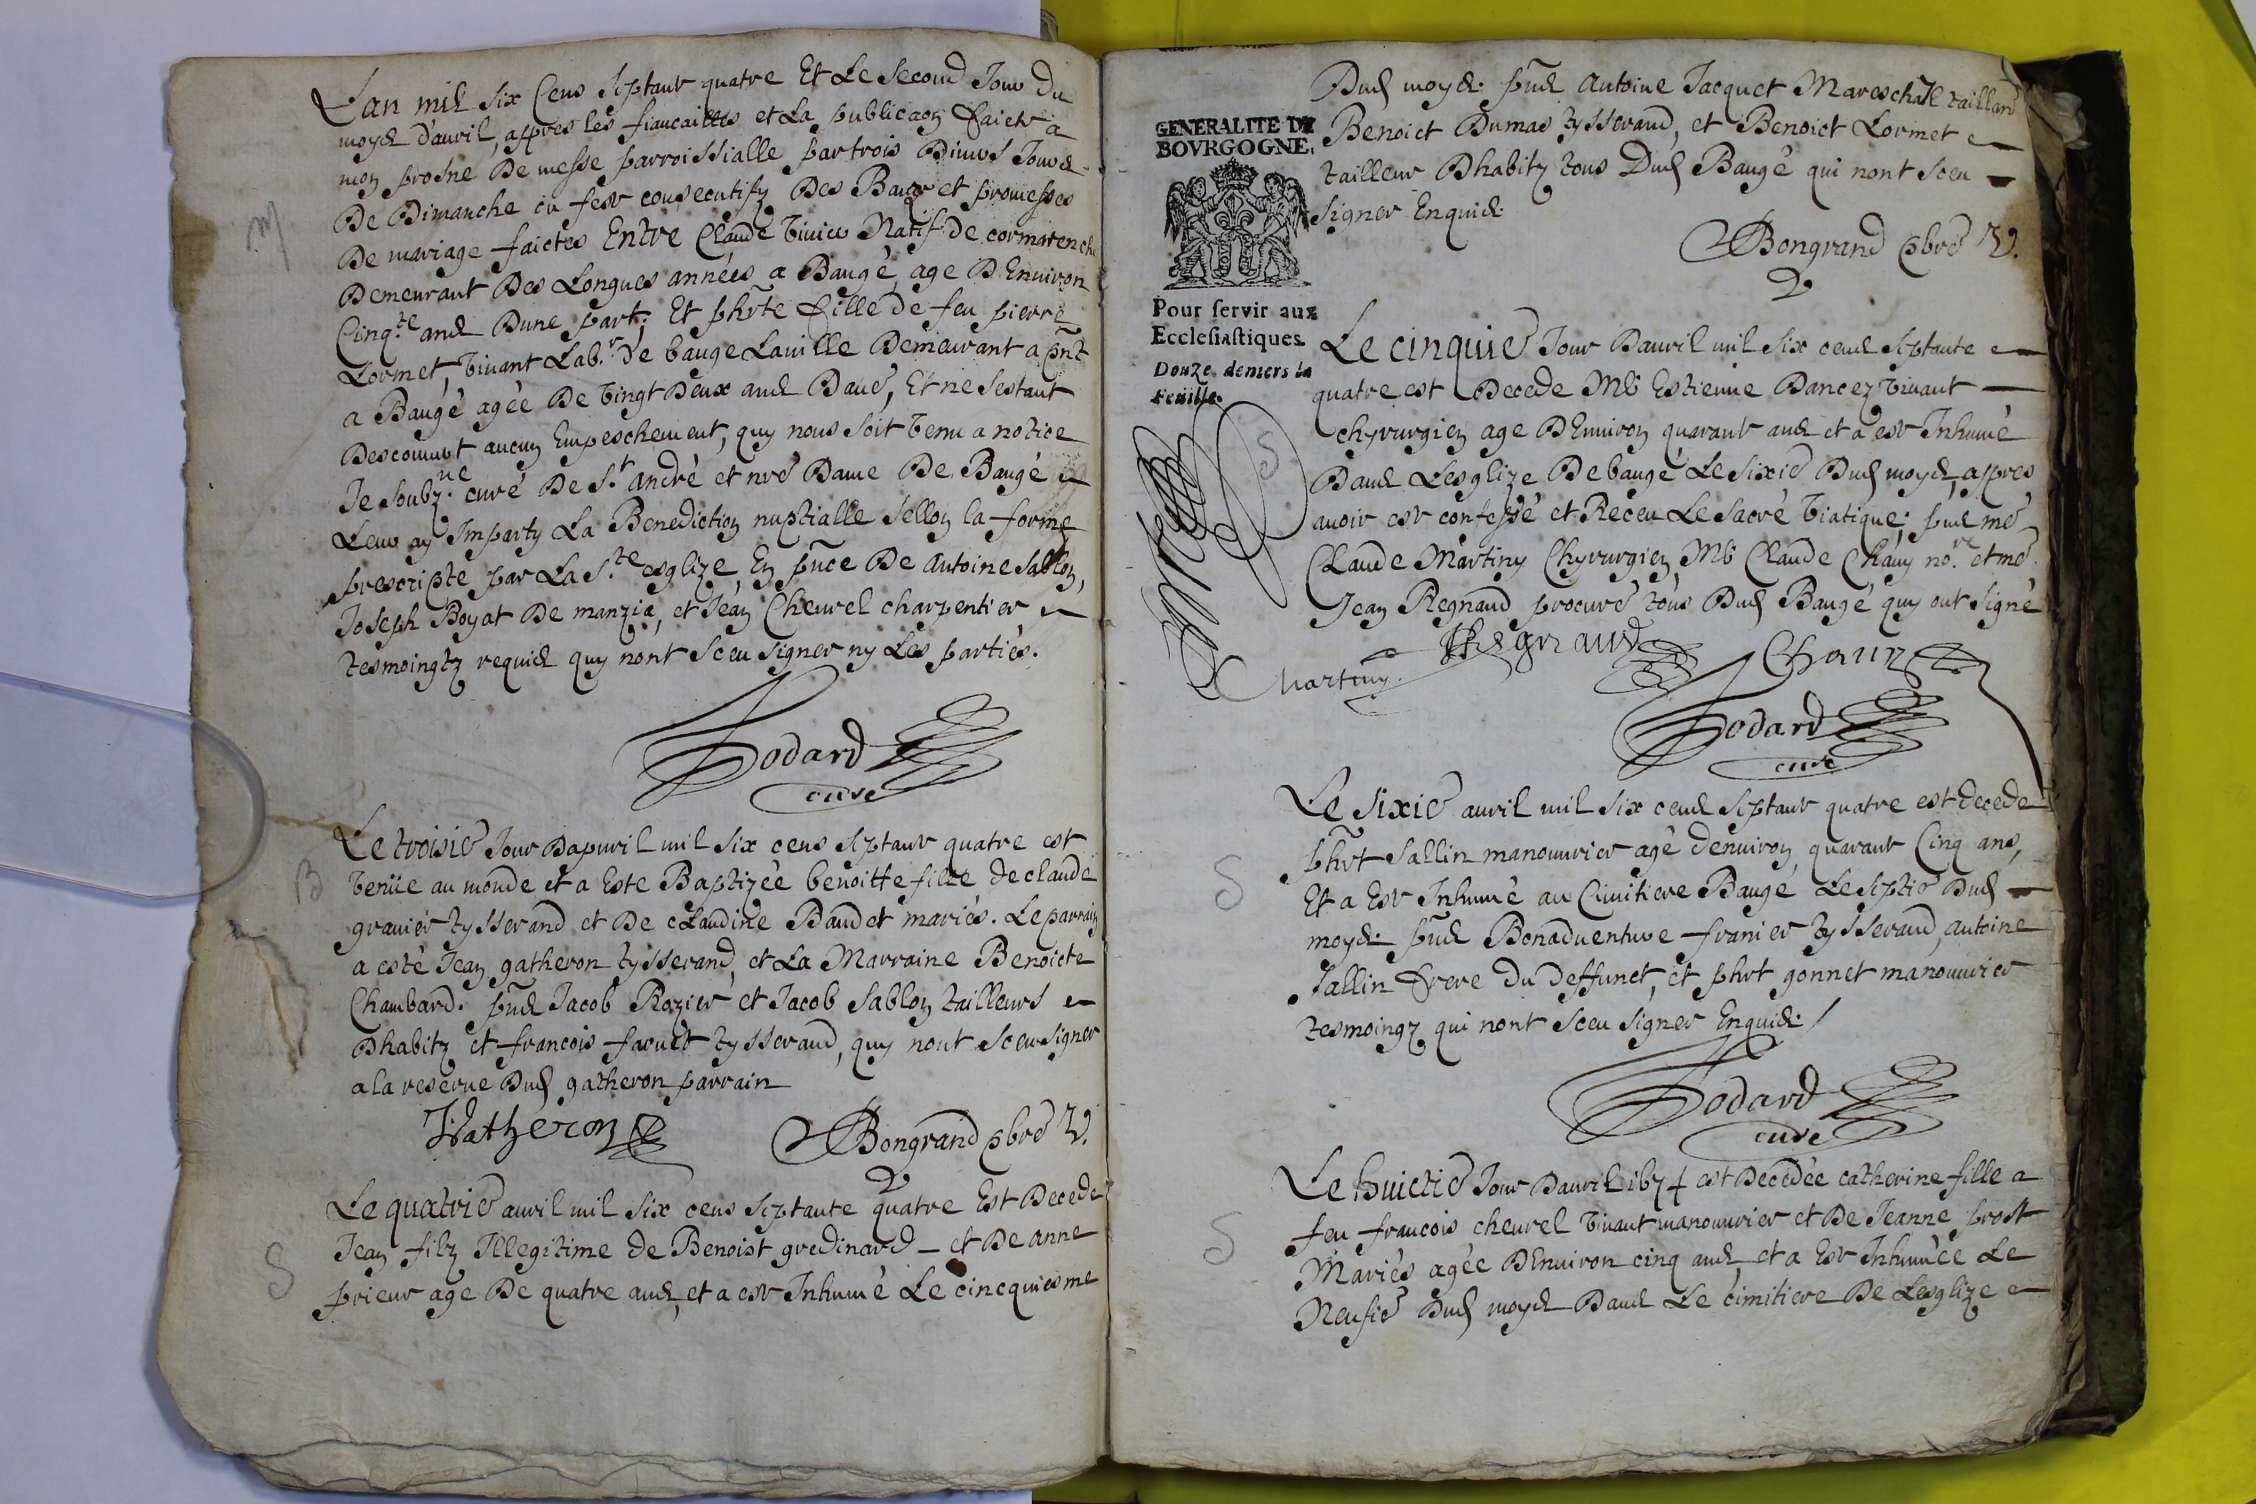 M
L'an mil six Cens septante quatre Et Le Second Jour du
moys d'avril, appres les fiancailles et La publicaon faicte a
mon prosne De messe parroissialle par trois Divers Jours
De Dimanche ou feste consecutifz Des Bans et promesses
De mariage faictes Entre Claude Vivier Natif de cormarenche
Demeurant Des Longues années a Baugé, age D'Environ
Cinq.te ans Dune part; Et phrte fille de feu pierre
Lormet, vivant Lab.r de bauge Laville Demeurant a pnt
a Baugé agée De vingt Deux ans Dautre, Et ne s'estant
Descouvert aucun Empeschement, quy nous soit venu a notice
Je soubz.né curé De S.t andré et nre Dame De Baugé
Leur ay Imparty La Benediction nuptialle sellon la forme
prescripte par La S.te esglize, En pnce De Antoine Sablon,
Joseph Boyat De manzia, et Jean Chevrel charpentier
tesmoingtz requis quy nont sceu signer ny Les parties.
Godard
curé
B
Le troisié Jour Dapvril mil six cens septante quatre est
venüe au monde et a Este Baptizée benoitte fille de claude
granier tysserand et De cLaudine Baudet mariés. Le parrain
a esté Jean gatheron tysserand, et La Marraine Benoicte
Chambard. pns Jacob Rozier et Jacob Sablon tailleurs
Dhabitz et francois favret tysserand, quy nont sceu signer
a la reserve Dud gatheron parrain
Gatheron
Bongrand pbre V.
S
Le quatrié avril mil six cens septante quatre Est Decede
Jean filz Illegitime de Benoist gredinard - et De anne
prieur age De quatre ans, et a este Inhumé Le cincquiesme
Dud moys. pns Antoine Jacquet Mareschal taillant
Benoict Dumas tysserand, et Benoict Lormet
tailleur Dhabitz tous Dud Baugé qui nont sceu
signer Enquis
Bongrand pbre V.
GENERALITE DE
BOVRGOGNE.
Pour servir aux
Ecclesiastiques
Douze deniers la
Feuille.
S
Le cinquié Jour Davril mil six cens septante
quatre est Decede M.e Estienne Dancez vivant
chyrurgien age D'Environ quarante ans et a este Inhumé
Dans Lesglize De baugé Le sixié Dud moys, appres
avoir este confessé et Receu Le Sacré viatique; pns me
Claude Martiny Chyrurgien M.e Claude Chauy no.re et me
Jean Regnaud procure tous Dud Baugé quy ont signé
Regnaud
Chauy
Martiny
Godard
curé
S
Le sixié avril mil six cens septante quatre est decede
phrt Sallin manouvrier agé d'environ quarante Cinq ans,
Et a Este Inhumé au Cimitiere Baugé Le septié Dud
moys. pns Bonadventure franier tysserand, antoine
Sallin frere du deffunct, et phrt gonnet manouvrier
tesmoingz qui nont sceu signer Enquis
Godard
curé
S
Le huictié Jour Davril 1674 est Decedée catherine fille a
feu francois chevrel vivant manouvrier et De Jeanne prost
Mariés agée D'Environ cinq ans et a Este Inhumée Le
Neufié Dud moys Dans Le cimitiere De Lesglize